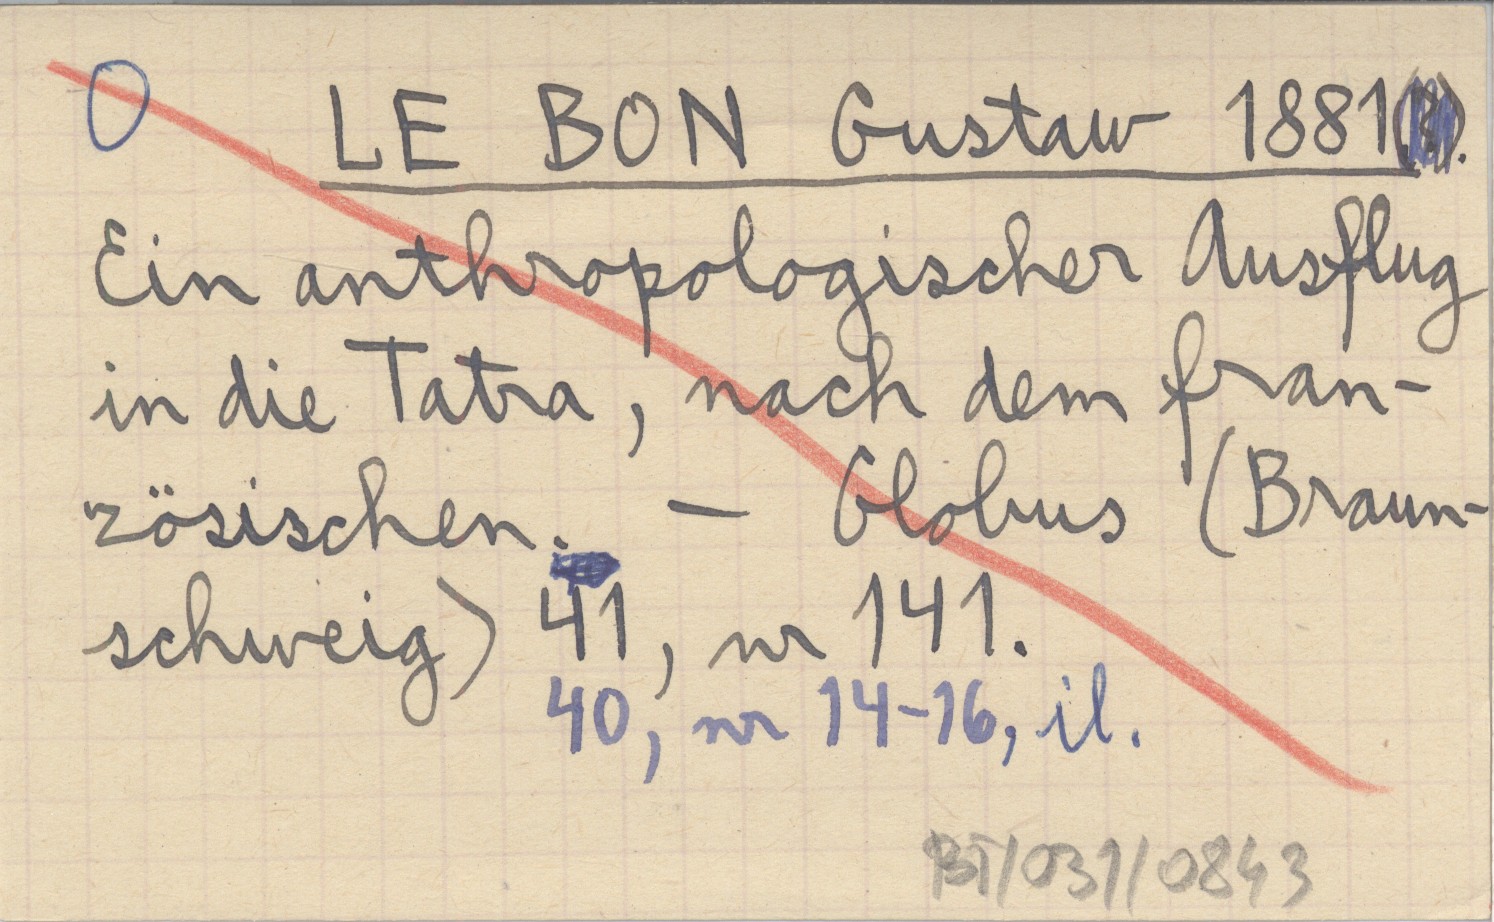 O LE BON Gustaw 1881.
Ein anthropologischer Ausflug
in die Tatra, nach dem fran-
zösischen. – Globus (Braun-
schweig) 41, nr 141.
40, nr 14-16, il.
BT/031/0843